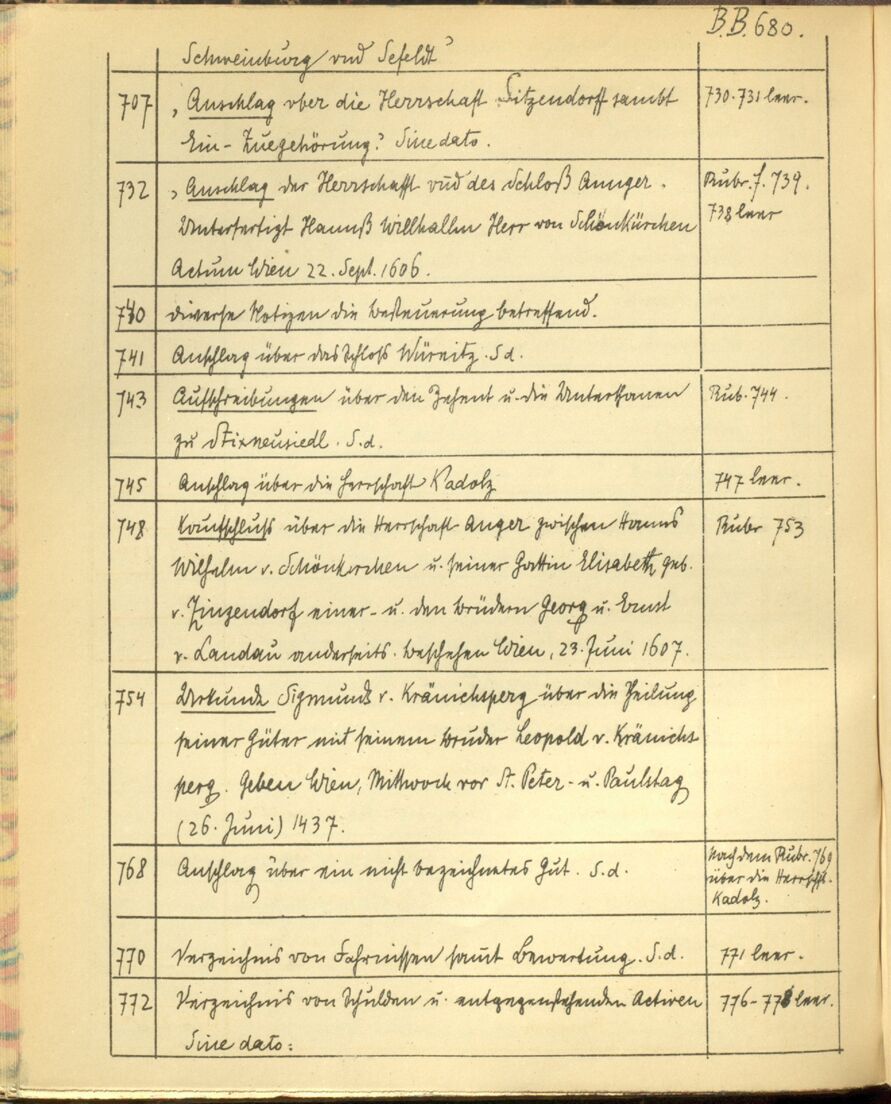 B.B.680.
Schweinburg vnd Sefeldt"
707 „Anschlag vber die Herrschaft Sitzendorff sambt 730.731 leer.
Ein- Zuegehörung." Sine dato.
732 „Anschlag der Herrschafft vnd des Schloß Annger. Rubr. f. 739.
Unterfertigt Hannß Willhallm Herr von Schönkürchen 738 leer
Actum Wien 22. Sept. 1606.
740 diverse Notizen die Besteuerung betreffend.
741 Anschlag über das Schloss Würnitz. S.d.
743 Aufschreibungen über den Zehent u. die Unterthanen Rub. 744.
zu Stixneusiedl. S.d.
745 Anschlag über die Herrschaft Kadolz 747 leer.
748 Kaufschluss über die Herrschaft Anger zwischen Hanns Rubr 753
Wilhelm v. Schönkirchen u. seiner Gattin Elisabeth geb.
v. Zinzendorf einer- u. den Brüdern Georg u. Ernst
v. Landau anderseits. Beschehen Wien, 23. Juni 1607.
754 Urkunde Sigmunds v. Kränichsperg über die Theilung
seiner Güter mit seinem Bruder Leopold v. Kränichs
perg. Geben Wien, Mittwoch vor St. Peter- u. Paulstag
(26. Juni) 1437.
768 Anschlag über ein nicht bezeichnetes Gut. S.d. Nach dem Rubr. 769
über die Herrschft.
Kadolz.
770 Verzeichnis von Fahrnissen sammt Bewertung. S.d. 771 leer.
772 Verzeichnis von Schulden u. entgegenstehenden Activen 776-778 leer.
Sine dato: